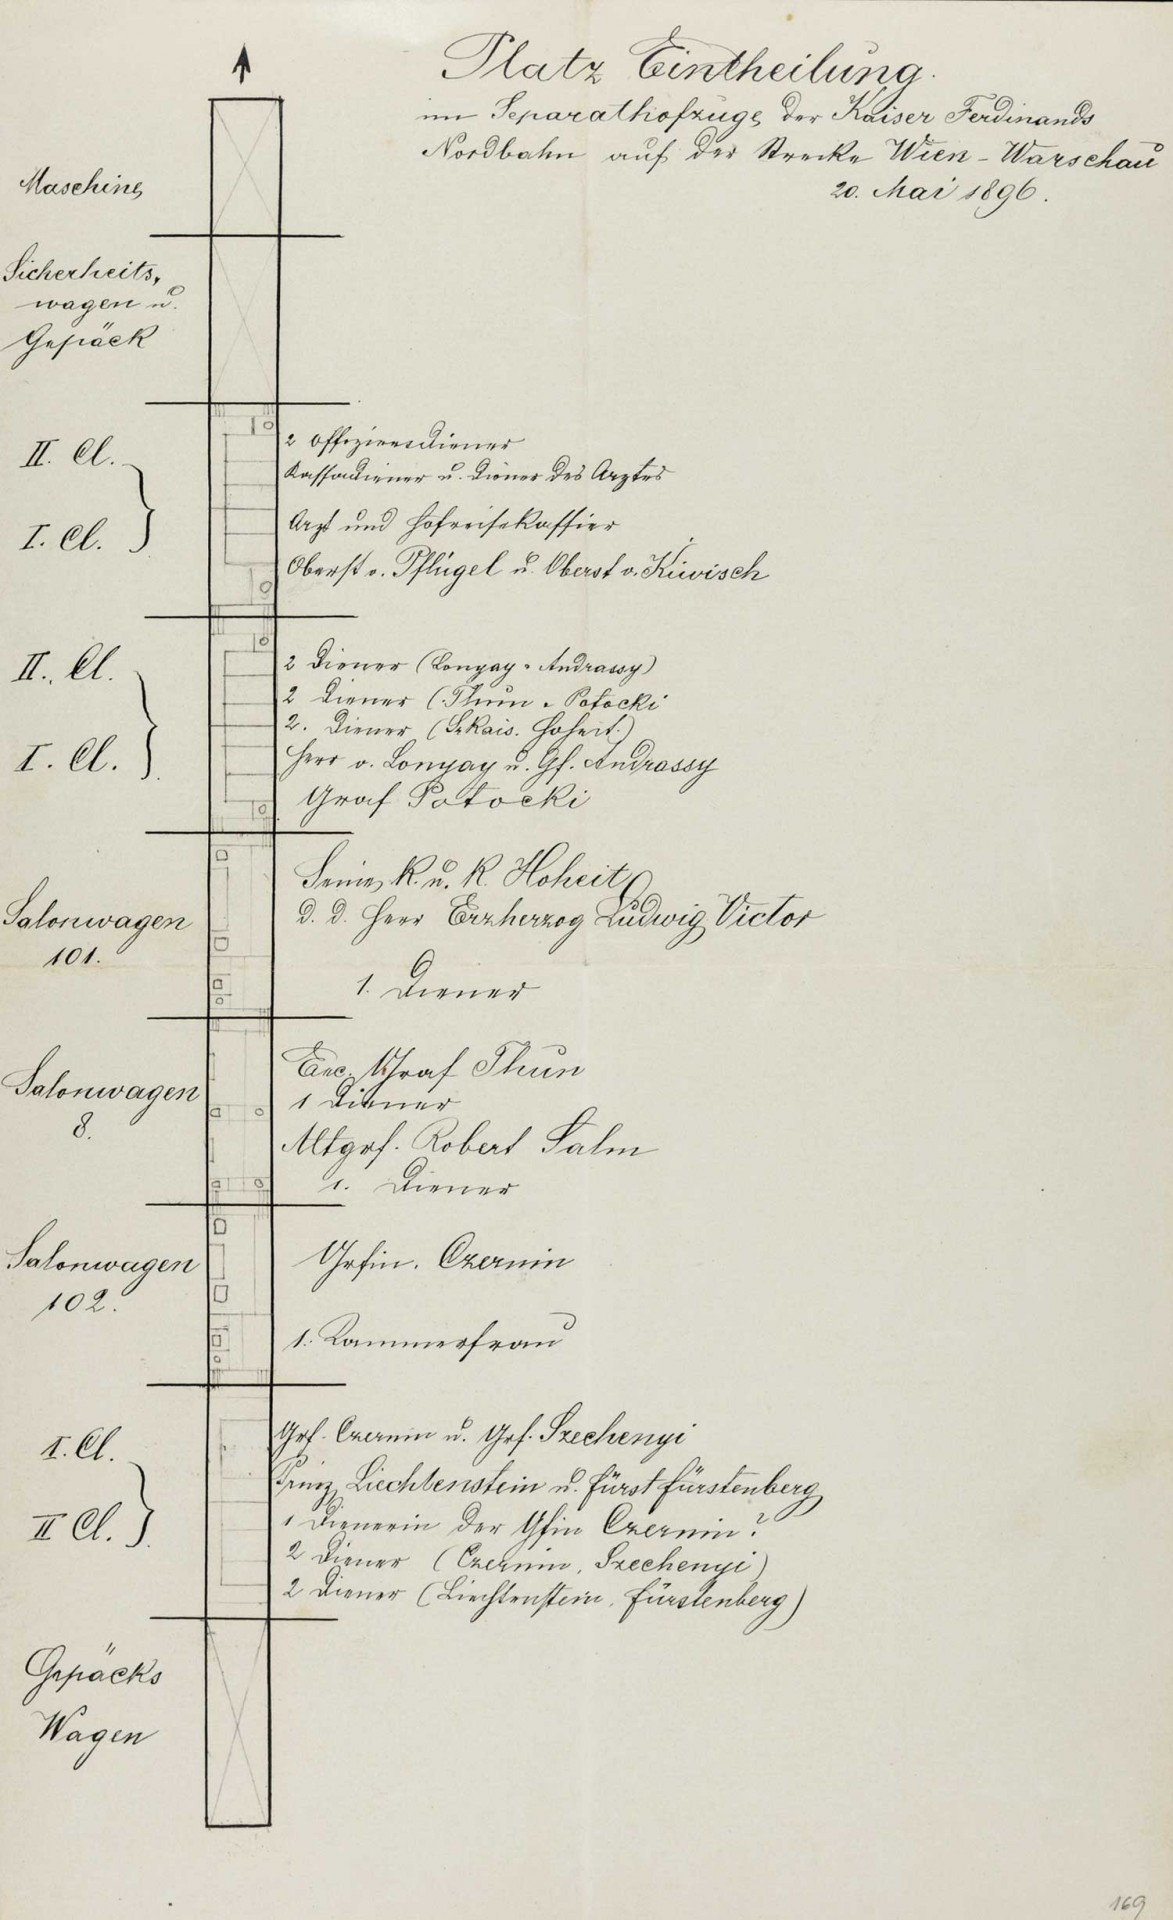 Platz Eintheilung.
im Separathofzuge der Kaiser Ferdinands
Nordbahn auf der Strecke Wien - Warschau
20. Mai 1896.
Maschine
Sicherheits-
wagen u.
Gepäck
II. Cl.
I. Cl.
2 Offiziersdiener
Kassadiener u. Diener des Arztes
Arzt und Hofreisekassier
Oberst v. Pflügel u. Oberst v. Kiwisch
II. Cl.
I. Cl.
2 Diener (Lonyay - Andrassy)
2 Diener (Thun - Potocki
2. Diener (Sr kais. Hoheit.)
Herr v. Lonyay u. Gf. Andrassy
Graf Potocki
Salonwagen
101.
Seine K. u. K. Hoheit
d. d. Herr Erzherzog Ludwig Victor
1. Diener
Salonwagen
8.
Exc. Graf Thun
1 Diener
Altgrf. Robert Salm
1. Diener
Salonwagen
102.
Grfin. Czernin
1. Kammerfrau
I. Cl.
II Cl.
Grf. Czernin u. Grf. Szechenyi
Prinz Liechtenstein u. Fürst Fürstenberg
1 Dienerin der Gfin Czernin?
2 Diener (Czernin, Szechenyi)
2 Diener (Liechtenstein, Fürstenberg)
Gepäcks
Wagen
169